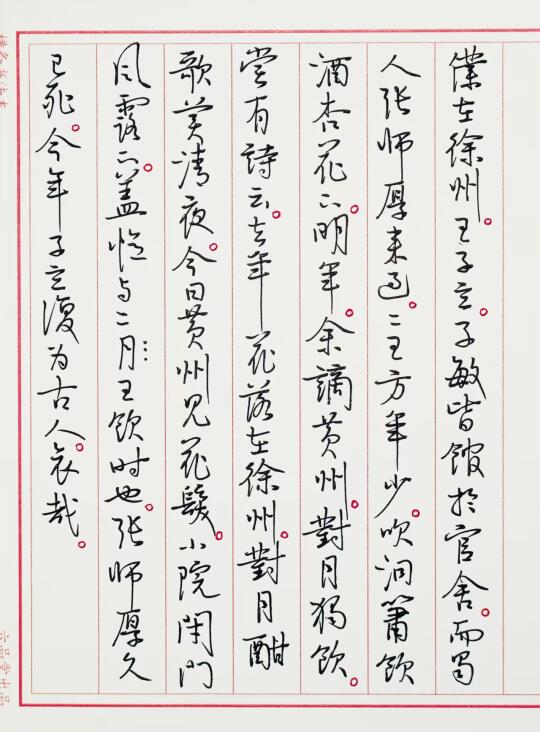 僕在徐州。王子立。子敏皆館於官舍。而蜀
人张师厚来過。二王方年少。吹洞簫飲
酒杏花下。明年。余謫黄州。對月獨飲。
嘗有詩云。去年花落在徐州。對月酣
歌美清夜。今日黄州见花髮。小院闭門
风露下。盖憶与二月王飲时也。张师厚久
已死。今年子立復为古人。哀哉。